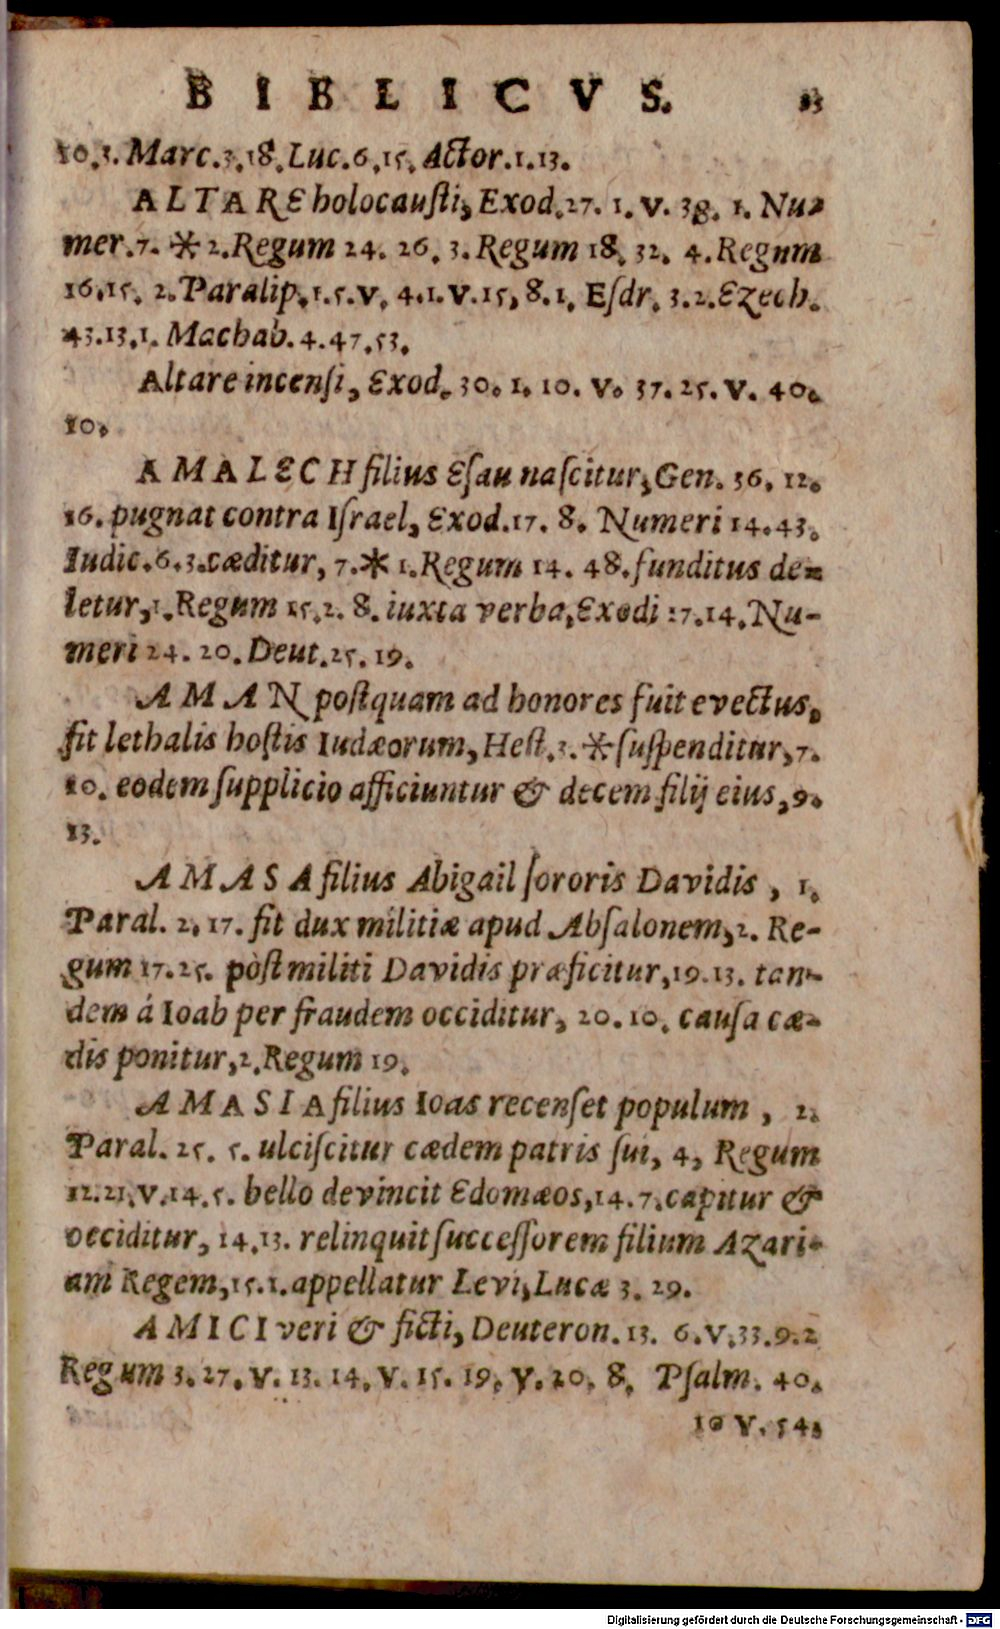 BIBLICVS. 13
10.3. Marc.3.18. Luc.6.15. Actor.1.13.
ALTARE holocausti, Exod.27. 1. V. 38. 1. Nu-
mer.7. * 2. Regum 24. 26. 3. Regum 18. 32. 4. Regum
16.15. 2. Paralip. 1.5. V. 4.1. V. 15, 8.1. Esdr. 3.2. Ezech.
43.13.1. Machab. 4. 47.53.
Altare incensi, Exod. 30. 1. 10. V. 37. 25. V. 40.
10.
AMALECH filius Esau nascitur, Gen. 36. 12.
16. pugnat contra Israel, Exod.17. 8. Numeri 14.43.
Iudic.6.3. cæditur, 7.* 1. Regum 14. 48. funditus de-
letur, 1. Regum 15.2. 8. iuxta verba, Exodi 17.14. Nu-
meri 24. 20. Deut.25. 19.
AMAN postquam ad honores fuit evectus,
fit lethalis hostis Iudæorum, Hest.3.* suspenditur, 7.
10. eodem supplicio afficiuntur & decem filij eius, 9.
13.
AMASA filius Abigail sororis Davidis, 1.
Paral. 2. 17. fit dux militiæ apud Absalonem, 2. Re-
gum 17. 25. pòst militi Davidis præficitur, 19.13. tan-
dem á Ioab per fraudem occiditur, 20. 10. causa cæ-
dis ponitur, 2. Regum 19.
AMASIA filius Ioas recenset populum, 2.
Paral. 25. 5. ulciscitur cædem patris sui, 4, Regum
12.21. V. 14. 5. bello devincit Edomæos, 14. 7. capitur &
occiditur, 14.13. relinquit successorem filium Azari-
am Regem, 15.1. appellatur Levi, Lucæ 3. 29.
AMICI veri & ficti, Deuteron. 13. 6. V. 33. 9. 2
Regum 3. 27. V. 13. 14. V. 15. 19. V. 20. 8. Psalm. 40.
10 V. 54.
Digitalisierung gefördert durch die Deutsche Forschungsgemeinschaft - DFG